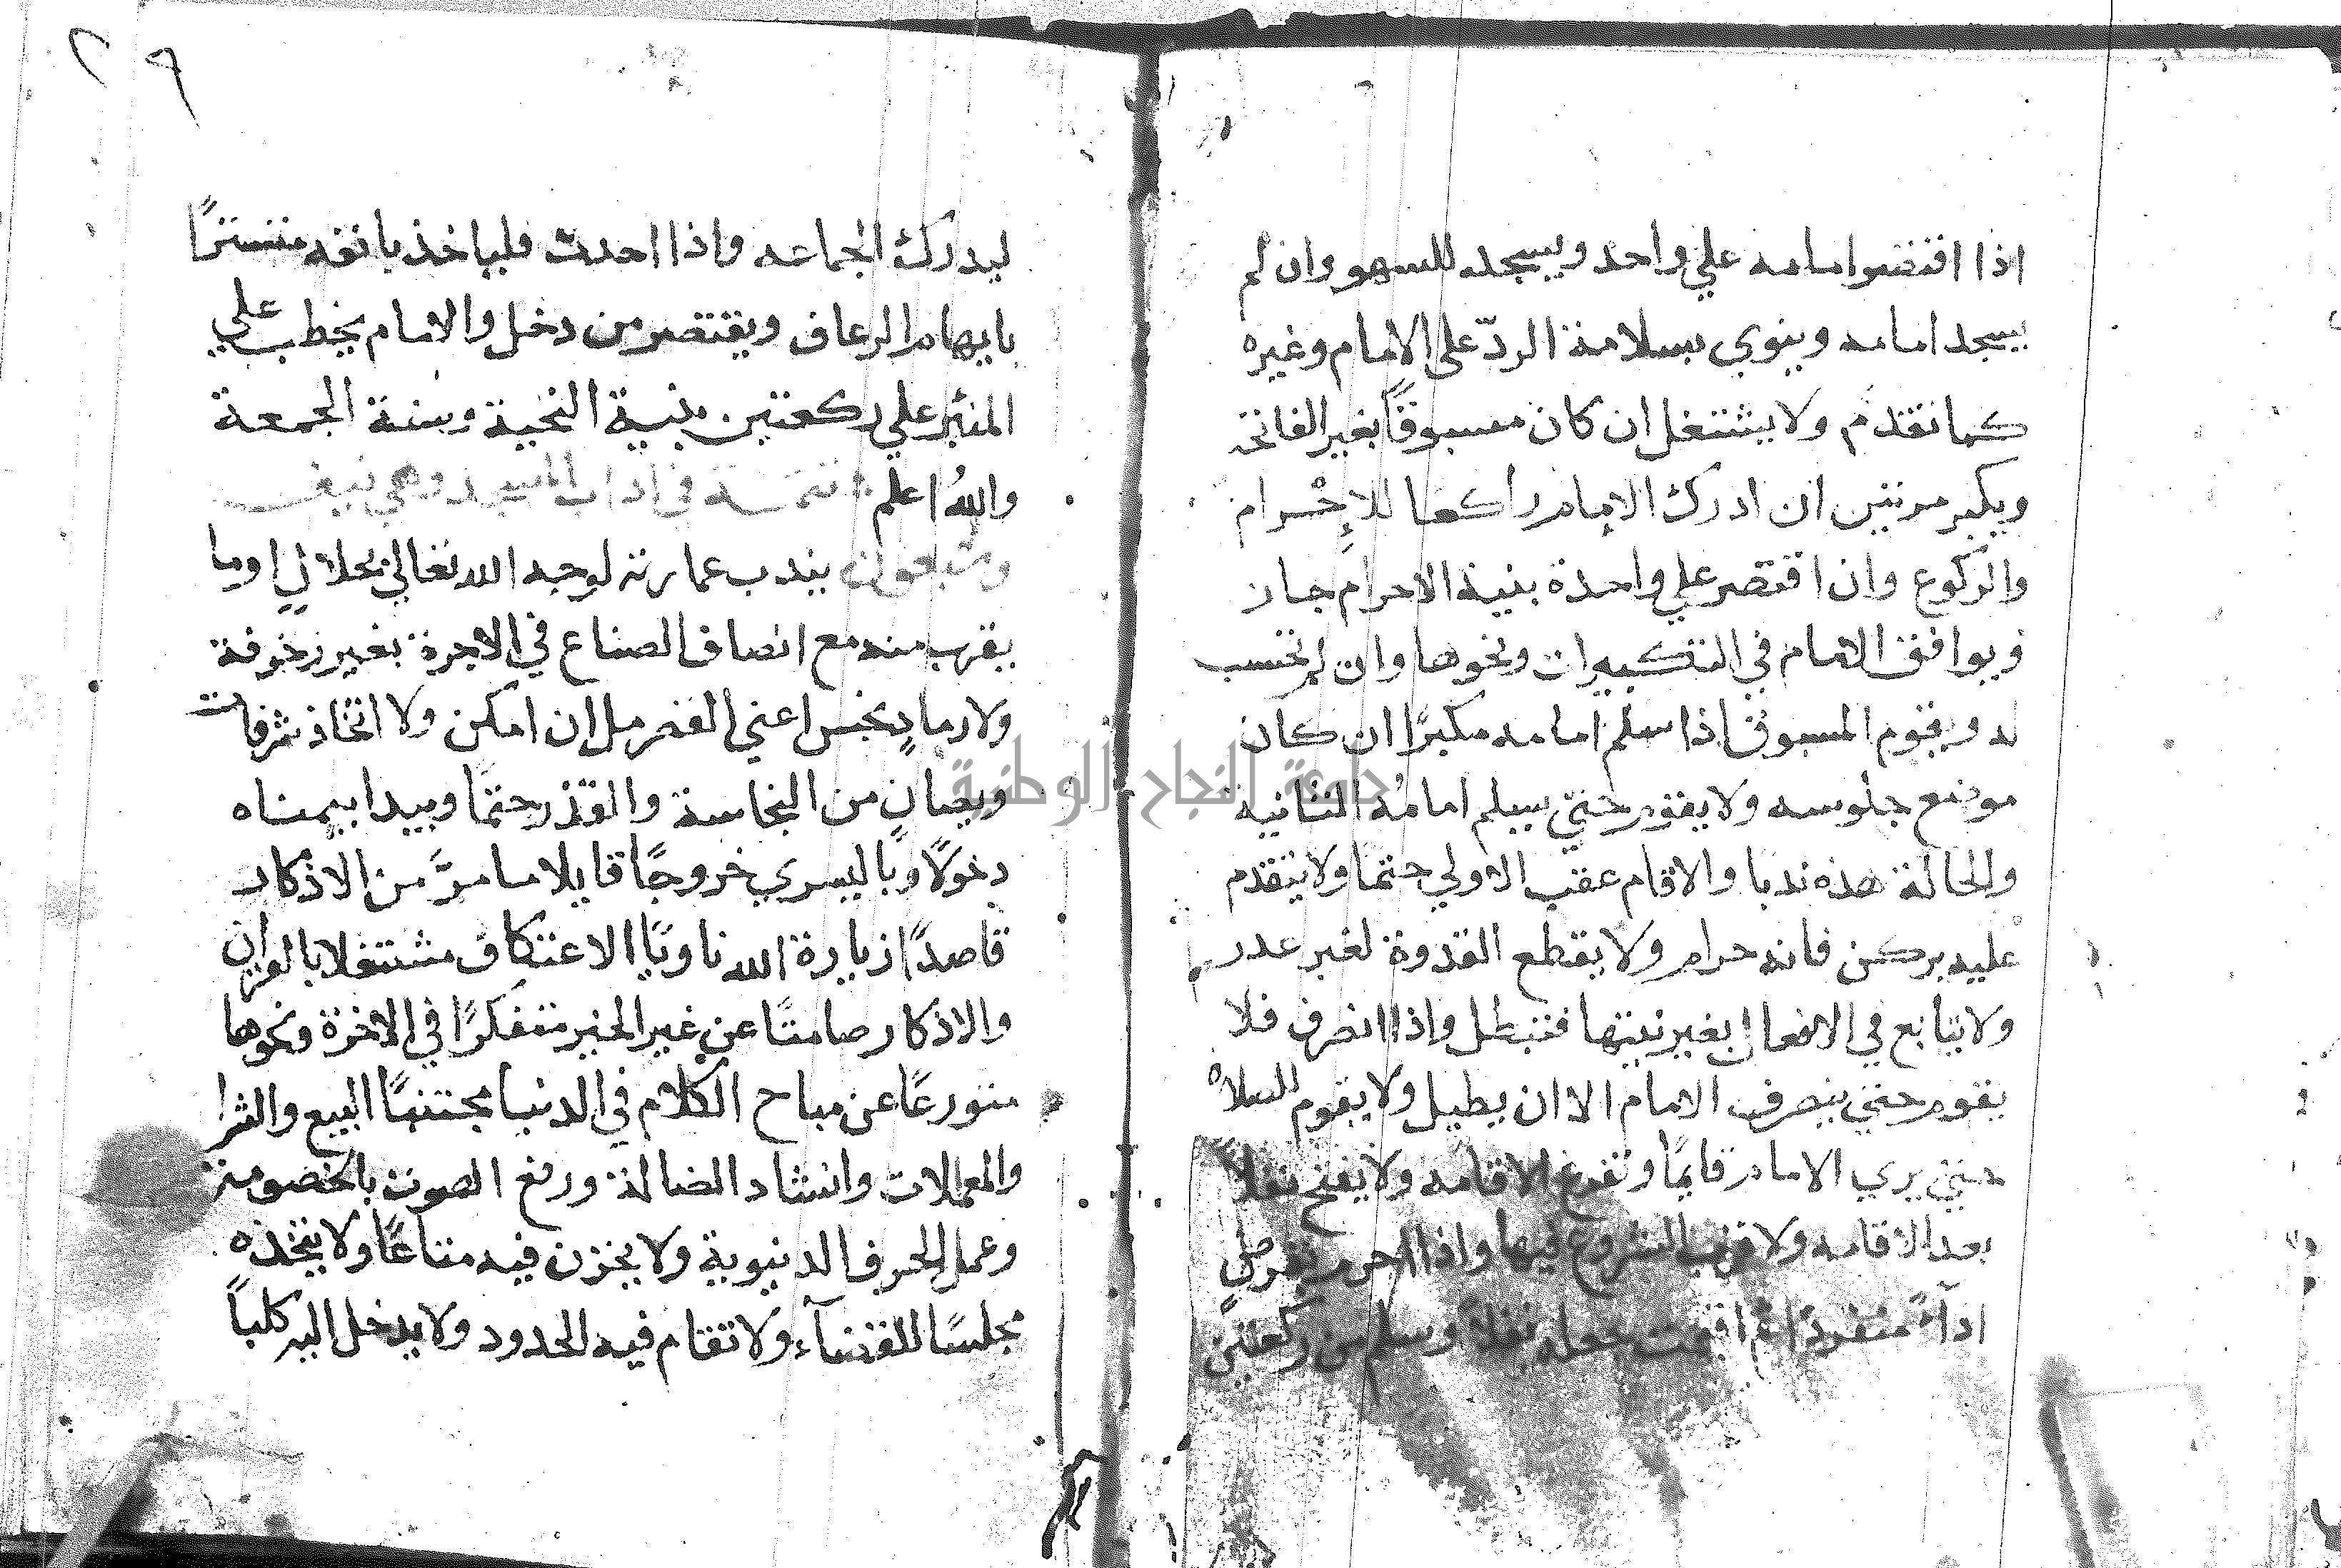 اذا اقتصر امامه علي واحد ويسجد للسهو وان لم
يسجد امامه وينوي بسلامه الردّ على الامام وغيره
كما تقدم ولا يشتغل ان كان مسبوقًا بغير الفاتحة
ويكبر مرتين ان ادرك الامام راكعا للاِحْرام
والركوع وان اقتصر علي واحدة بنية الاحرام جاز
ويوافق الامام في التكبيرات ونحوها وان لم تحتسب
له ويقوم المسبوق اذا سلم امامه مكبرًا ان كان
موضع جلوسه ولا يقوم حتي يسلم امامُه الثانية
والحالة هذه ندبا والا قام عقب الاولي حتمًا ولا يتقدم
عليه بركن فانه حرام ولا يقطع القدوة لغير عذر
ولا يتابع في الافعال بغير نيتها فتبطل واذا انصرف فلا
يقوم حتي ينصرف الامام الا ان يطيل ولا يقوم للصلاة
حتي يري الامام قايمًا وتفرغ الاقامه ولا يفتح نفلاً
بعد الاقامه ولا قرب الشروع فيها واذا احرم بفرضٍ
اداًء منفردًا ثم اقيمت جعله نفلاً وسلم من ركعتين
ليدرك الجماعه واذا احدث فلياخذ بانفه متسترًا
بايهام الرعاف ويقتصر من دخل والامام يخطب علي
المنبر علي ركعتين بنية التحية وسنة الجمعة
واللهُ اعلم تتمـة في اداب المسجد وهي نيف
وسبعون يندب عمارته لوجه الله تعالي بحلالٍ او ما
يقرب منه مع انصاف الصناع في الاجرة بغير زخرفة
ولا رمادٍ نجس اعني القصرمل ان امكن ولا اتخاذ شرفات
ويصان من النجاسة والقذر حتمًا ويبدا بيمناه
دخولًا وباليسري خروجًا قايلا ما مرَّ من الاذكار
قاصدًا زيارة الله ناويًا الاعتكاف مشتغلا بالقران
والاذكار صامتًا عن غير الخير متفكرًا في الاخرة ونحوها
متورعًا عن مباح الكلام في الدنيا مجتنبًا البيع والشرا
والمعملات وانشاد الضالة ورفع الصوت بالخصومة
وعمل الحرف الدنيوية ولا يخزن فيه متاعًا ولا يتخذه
مجلسًا للقضآء ولا تقام فيه الحدود ولا يدخل اليه كلبًا
جامعة النجاح الوطنية